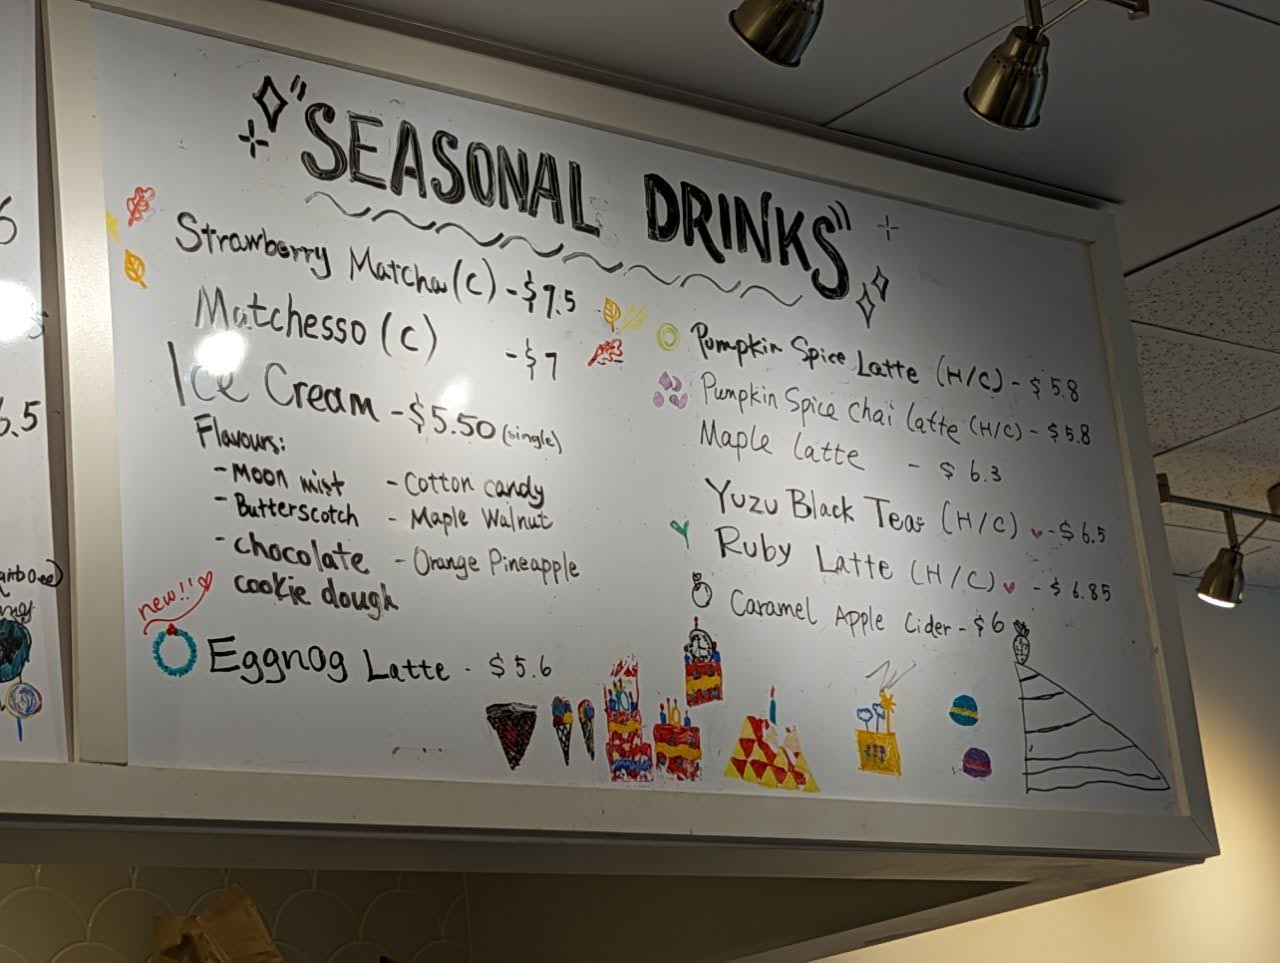 "SEASONAL DRINKS"
Strawberry Matcha (C) - $7.5
Matchesso (C) - $7
Ice Cream - $5.50 (single)
Flavours:
- Moon mist
- Butterscotch
- chocolate
cookie dough
- Cotton candy
- Maple Walnut
- Orange Pineapple
new!!
Eggnog Latte - $5.6
Pumpkin Spice Latte (H/C) - $5.8
Pumpkin Spice chai latte (H/C) - $5.8
Maple latte - $6.3
Yuzu Black Tea (H/C) - $6.5
Ruby Latte (H/C) - $6.85
Caramel Apple Cider - $6
6.5